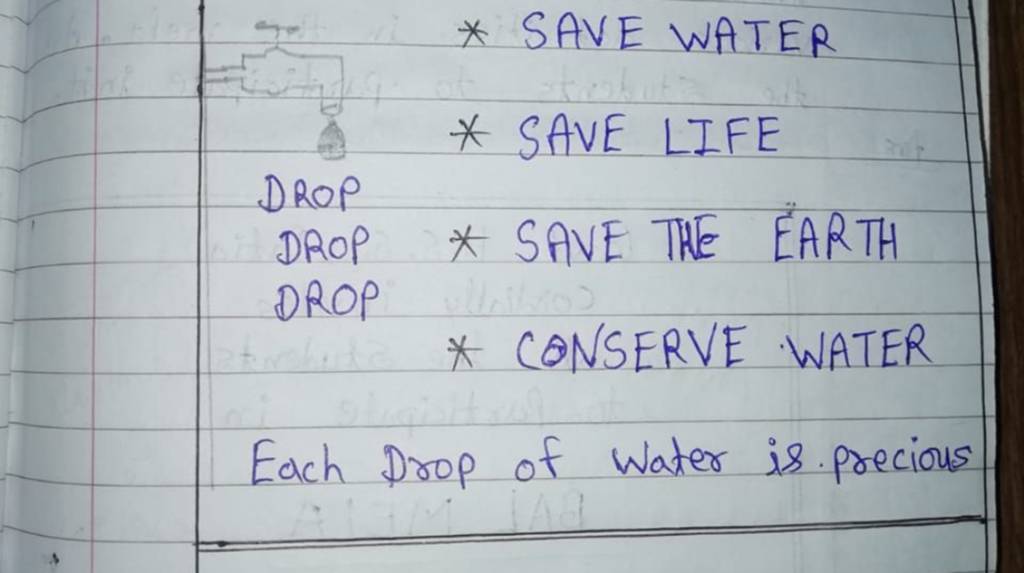 * SAVE WATER
* SAVE LIFE
DROP
DROP * SAVE THE EARTH
DROP
* CONSERVE WATER
Each Drop of Water is precious